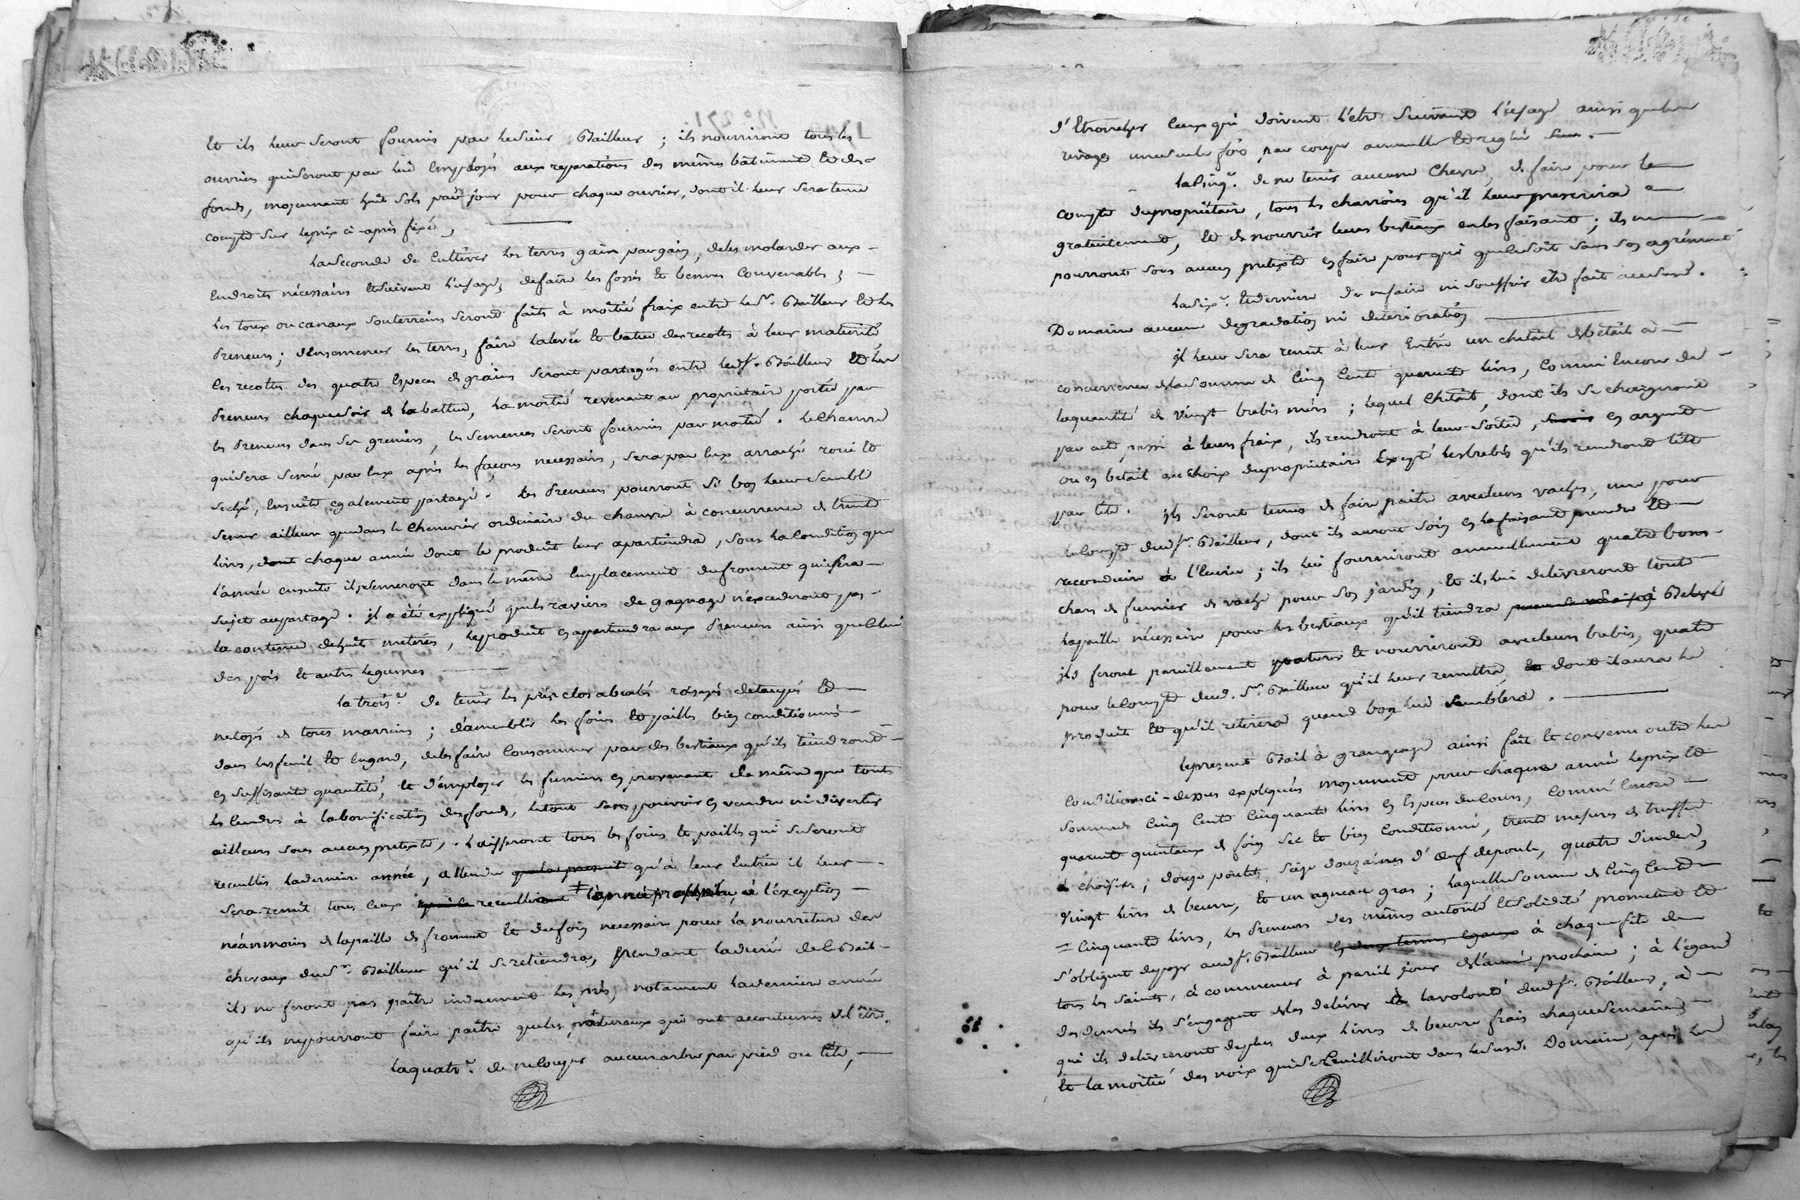 et ils leur seront fournis par le sieur Bailleur ; ils nourriront tous les
ouvriers qui seront par lui employés aux reparations des mêmes bâtiments et des
fonds, moyennant huit sols par jour pour chaque ouvrier, dont il leur sera tenu
compte sur le prix ci-après fixé,
La seconde de cultiver les terres gain par gain, de les molarder aux
endroits nécessaires et suivant l'usage, de faire les fossés et bennes convenables ;
les toux ou canaux souterreins seront faits à moitié fraix entre le Sr. Bailleur et les
Preneurs ; d'ensemencer les terres, faire la levée et battue des recoltes à leur maturité
les recoltes des quatre especes de grains seront partagés entre led. Sr. Bailleur et les
Preneurs chaque soir de la battue, la moitié revenant au propriétaire portée par
les Preneurs dans ses greniers, les semences seront fournies par moitié. Le chanvre
qui sera semé par eux après les façons necessaires, sera par eux arraché roui et
seché, ensuite également partagé. Les Preneurs pourront si bon leur semble
semer ailleurs que dans le chenevier ordinaire du chanvre à concurrence de trente
livres, dont chaque année dont le produit leur apartiendra, sous la condition que
l'année ensuite ils semeront dans le même emplacement du froment qui sera
sujet au partage. il a été expliqué que les raviers de gagnage n'excederont pas
la contenue de huit metéres, le produit en appartiendra aux Preneurs ainsi que celui
des pois et autres legumes,
La trois.e de tenir les prés clos abialés rasés detaupés et
netoyés de tous marrains ; d'ameublir les foins et pailles bien conditionnés
dans les fenil et engard, de les faire consommer par des bestiaux qu'ils tiendront
en suffisante quantité, et d'employer les fumiers en provenant de même que toutes
les cendres à la bonification des fonds, le tout sans pouvoir en vendre ni divertir
ailleurs sous aucun pretexte, laisseront tous les foins et pailles qui se seront
recueillis la derniere année, attendu que le present qu'à leur entrée il leur
sera remit tous ceux qui se recueilliront l'année prochaine, à l'exception
néanmoins de la paille de froment et du foin necessaire pour la nourriture des
chevaux dud. Sr. Bailleur qu'il se retiendra, pendant la durée de ce Bail
ils ne feront pas paître indument les prés, notament la derniere année
qu'ils ne pourront faire paître que les pâturaux qui ont accoutumés de l'être.
La quatr.e de ne couper aucun arbre par pied ou tête,
d'etroncher ceux qui doivent l'etre suivant l'usage ainsi que les
rivages une seule fois par coupe annuelle et reglée
La cinq.e de ne tenir aucune chevre, de faire pour le
compte du propriétaire, tous les charrois qu'il leur prescrira
gratuitement, et de nourrir leurs bestiaux en les faisant ; ils ne
pourront sous aucun pretexte en faire pour qui que ce soit sans son agrément
La six.e et derniere de ne faire ni souffrir etre fait au susd.
Domaine aucune degradation ni deterioration
il leur sera remit à leur entrée un chetail de bétail à
concurrence de la somme de cinq cents quarante livres, comme encore de
la quantité de vingt brebis méres ; lequel chetail, dont ils se chargeront
par acte passé à leurs fraix, ils rendront à leur sortie, en argent
ou en betail au choix du propriétaire excepté les brebis qu'ils rendront tête
par tête. ils seront tenus de faire paitre avec leurs vaches, une pour
le compte dud. Sr. Bailleur, dont ils auront soin en la faisant prendre et
reconduire à l'ecurie ; ils lui fourniront annuellement quatre bons
chars de fumier de vache pour son jardin, et ils lui delivreront toute
la paille nécessaire pour les bestiaux qu'il tiendra
ils feront pareillement paturer et nourriront avec leurs brebis, quatre
pour le compte dud. Sr. Bailleur qu'il leur remettra, et dont il aura le
produit et qu'il retirera quand bon lui semblera.
Le present Bail à grangeage ainsi fait et convenu outre les
conditions ci-dessus expliqués moyennant pour chaque année le prix et
somme de cinq cents cinquante livres en especes de cours, comme encore
quarante quintaux de foin sec et bien conditionné, trente mesures de truffes
à choisir ; douze poulets, seize douzaines d'œuf de poule, quatre dindes,
vingt livres de beurre, et un agneau gras ; laquelle somme de cinq cents
cinquante livres, les Preneurs des mêmes autorité et solidité promettent et
s'obligent de payer aud. Sr. Bailleur en deux termes egaux à chaque fête de
tous les Saints, à commencer à pareil jour de l'année prochaine ; à l'égard
des denrées ils s'engagent de les delivrer à la volonté dud. Sr. Bailleur, à
qui ils delivreront de plus deux livres de beurre frais chaque semaine
et la moitié des noix qui se cueilliront dans le susd. Domaine, après les